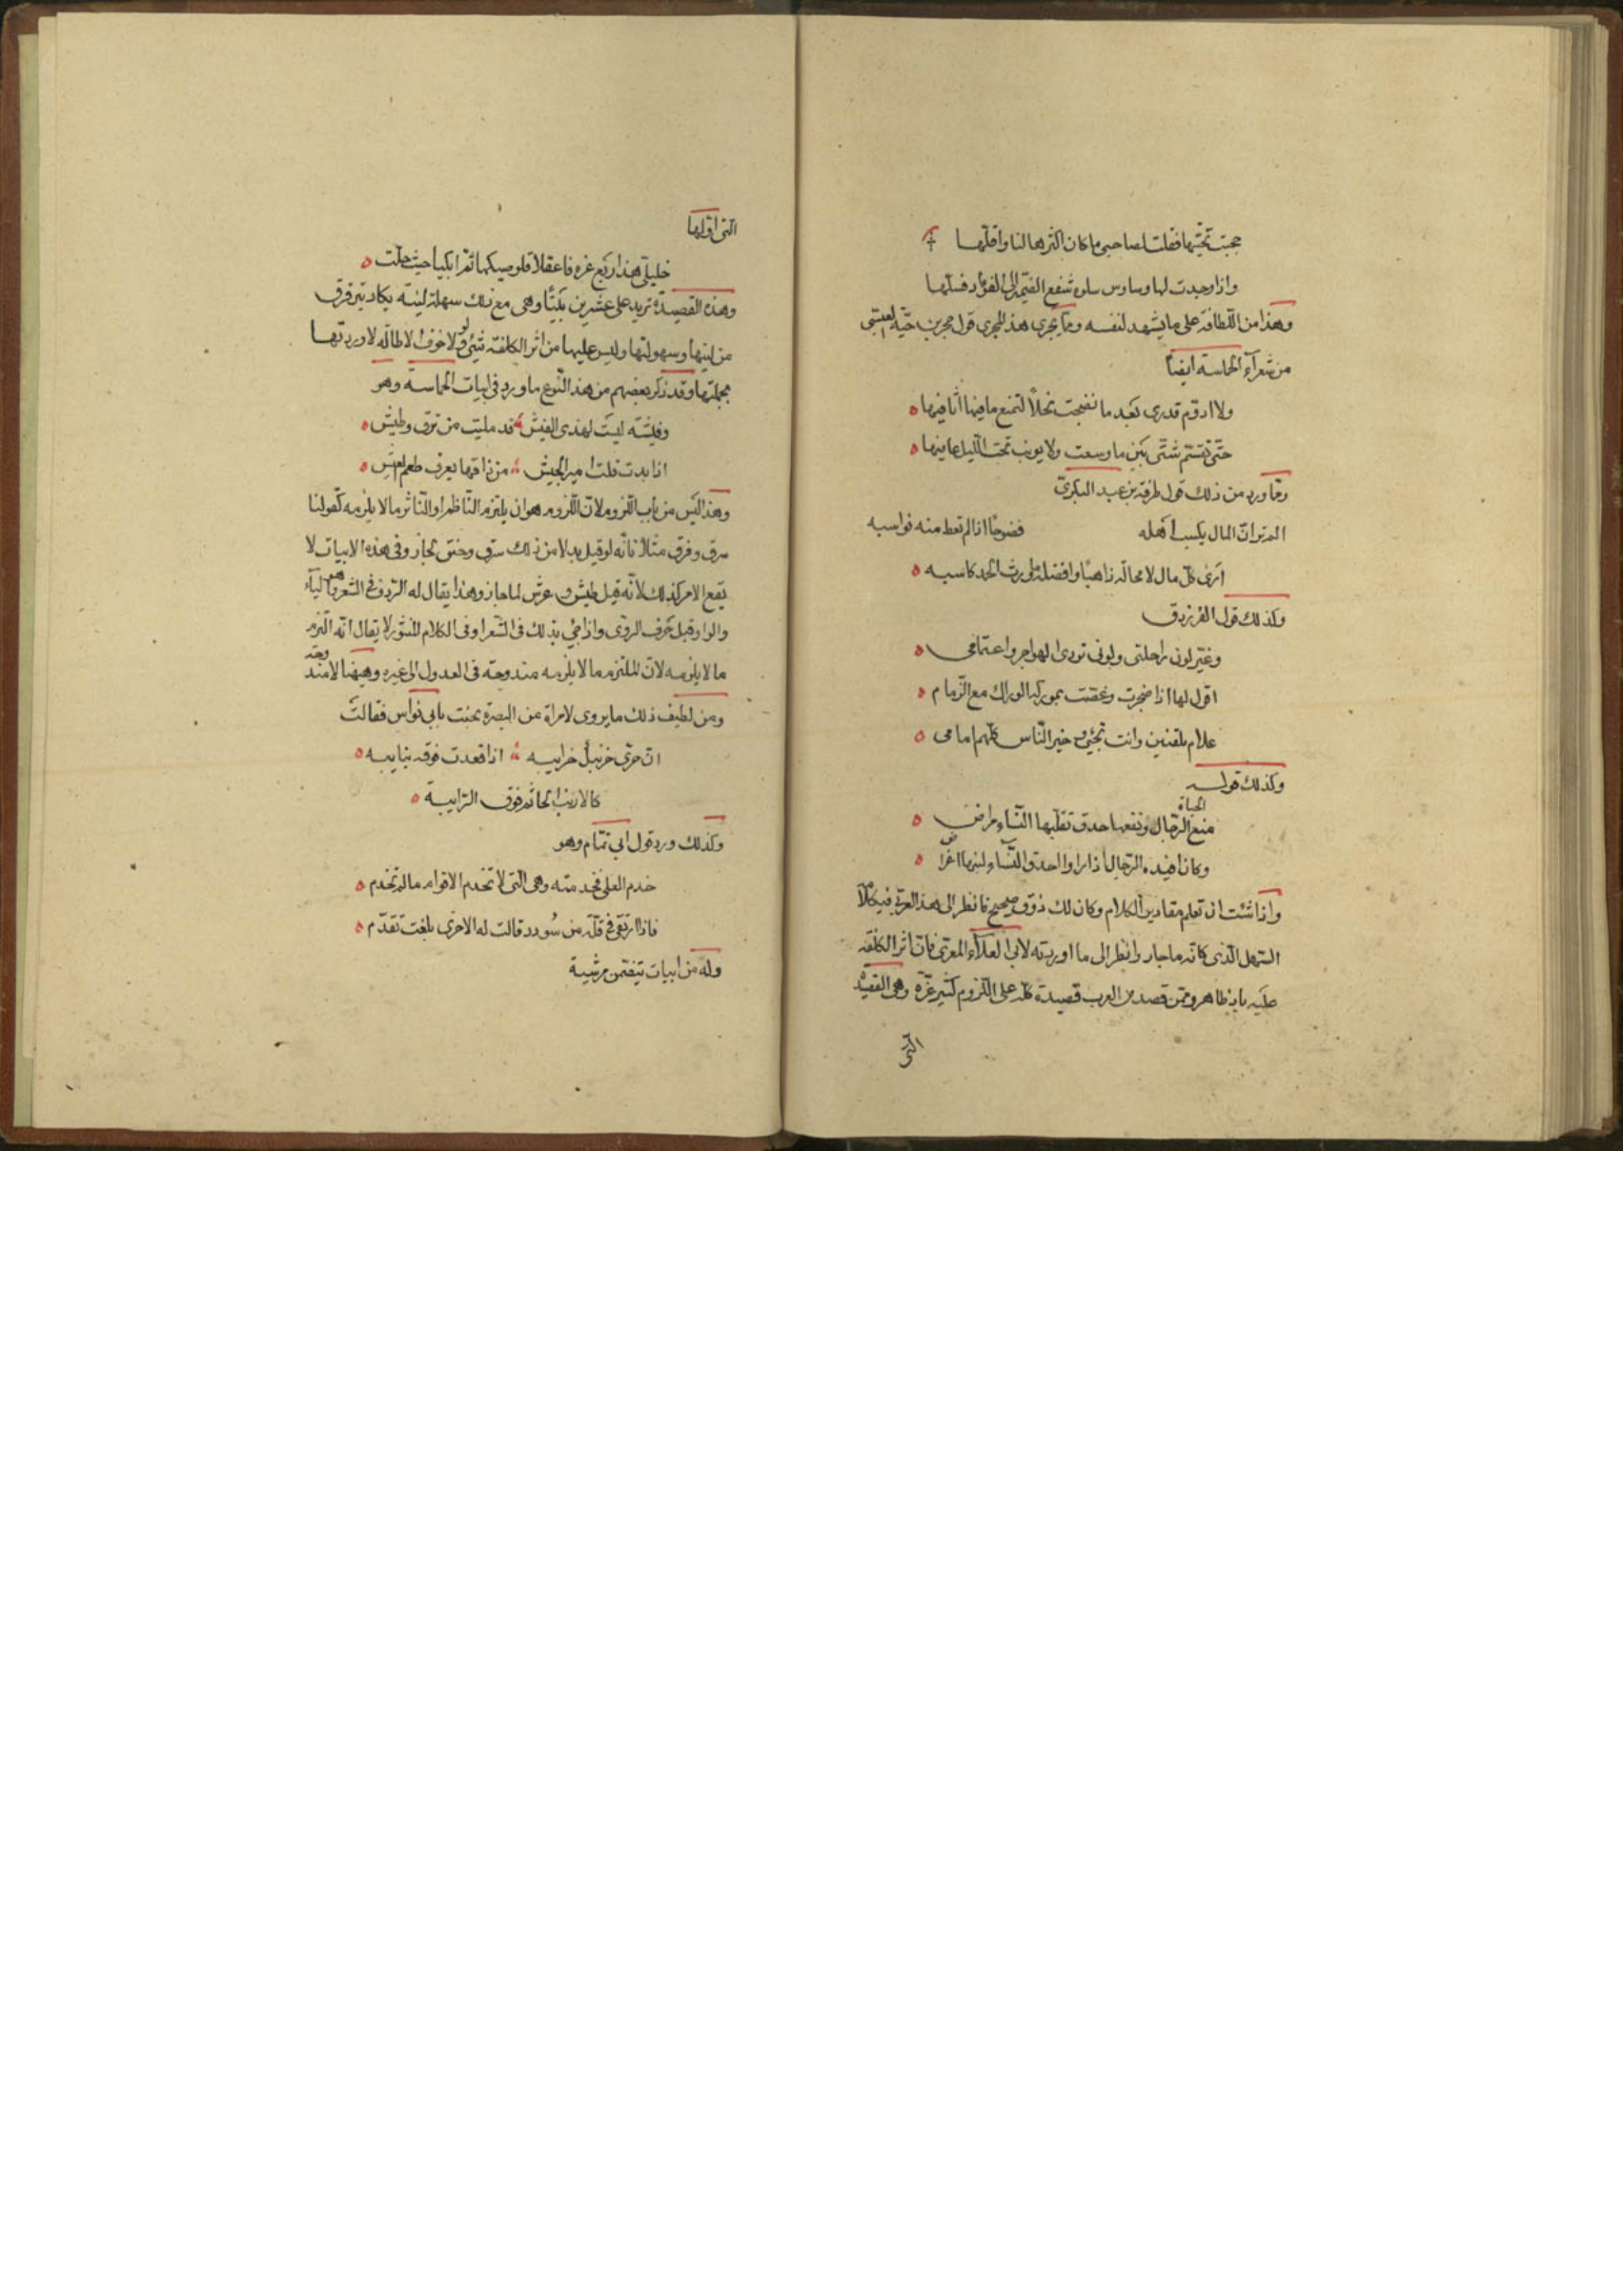 حجبت تحيّتها فقلت لصاحبي ما كان اكثرها لنا واقلّها
واذا وجدت لها وساوس سلوة شفع الضمير الى الفؤاد فسلّها
وهذا من اللّطافة على ما يشهد لنفسه وممّا يجرى هذا المجرى قول حجر بن حيّة العبسى
من شعرآء الحماسة ايضاً
ولا ادوّم قدرى بَعد ما نضجت بخلاً لتمنع ما فيها اثافيها
حتّى تقسّم شتّى بَين ما وسعت ولا يونب تحت اللّيل عافيها
وممّا ورد من ذلك قول طرفة بن عبد البكرىّ
الم تر انّ المال يكسب اَهله فضوحًا اذا لم تعط منه نواسبه
اَرى كلّ مال لا محالة ذاهبًا وافضله ما ورث الحمد كاسبه
وكذلك قول الفرزدق
وغيّر لون راحلتى ولونى تودى الهواجر واعتمامى
اقول لها اذا ضجرت وعضت بموركة الوراك مع الزّمام
علام تلفتين وانت تحتى وخير النّاس كلّهم امامى
وكذلك قوله
منع الحياة الرّجال ونفعها حدق تقلّبها النّساء مراض
وكان افيدة الرّجال اذا راوا حدق النّساء لنبلها اغراض
واذا شئت ان تعلم مقادير الكلام وكان لك ذوق صحيح فانظر الى هذا العربى فى كلامه
السّهل الّذى كانّه ماء جار وانظر الى ما اوردته لابى العلآء المعرّى فان اثر الكلفة
عليه باد ظاهر وممّن قصد من العرب قصيدة كلّه على اللّزوم كثير عزّة وهى القصيدة
الّتى
الّتى اوّلها
خليلىّ هذا ربع عزة فاعقلا قلوصيكما ثمّ ابكيا حيث حلّت
وهذه القصيدة تزيد على عشرين بَيتًا وهى مع ذلك سهلة ليّنة يكاد تترقرق
من لينها وسهولتها وليس عليها من اثر الكلفة شىء ولولا خوف الاطالة لاوردتها
بجملتها وقد ذكر بعضهم من هذا النّوع ما ورد فى ابيات الحماسة وهو
وفيشة ليست لهذى الفيش قد مليت من نزق وطيش
اذا بدت قلت امير الجيش من ذاقها يعرف طعم العيش
وهذا ليَس من باب اللّزوم لانّ اللّزوم هو ان يلتزم النّاظم او النّاثر ما لا يلزمه كَقولنا
سرق وفرق مثلاً فانّه لو قيل بدلا من ذلك سرق وخنق لجاز وفى هذه الابيات لا
يقع الامر كذلك لانّه لو قيل طيش وعرش لما جاز وهذا يقال له الردف فى الشعر وهو اليآء
والواو قبل حَرف الروّى واذا جئ بذلك فى الشعر او فى الكلام المنثور لا يقال انّه التزم
ما لا يلزمه لانّ الملتزم ما لا يلزمه مندوحة فى العدول الى غيره وهيهنا لا مندوحة
ومن لطيف ذلك ما يروى لامراة من البصرة مجنت بابى نواس فقالَت
ان حرى حزنبل حزابيه اذا قعدت فوقه نبا بيه
كالارنب الجاثم فوق الرّابية
وكَذلك ورد قول ابى تمّام وهو
خدم العلى فخدمته وهى التى لا تخدم الاقوام ما لم تخدم
فاذا ارتقى فى قلّة من سُودد قالت له الاخرى بلغت تقدّم
وله من ابيات تتضمّن مرثية